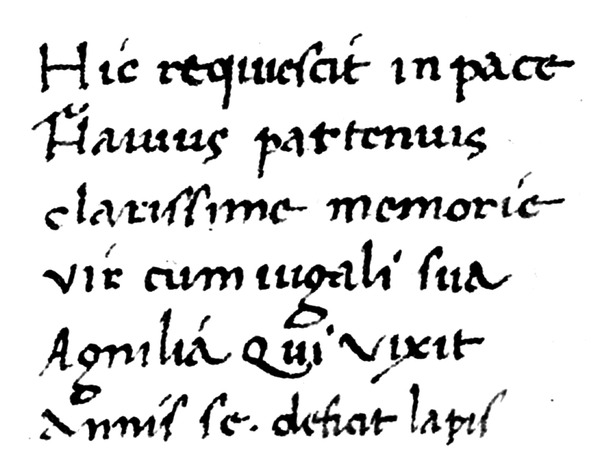 Hic requiescit in pace
Flauius partenius
clarissime memorie
vir cum iugali sua
Agnilia Qui vixit
Annis se. deficit lapis